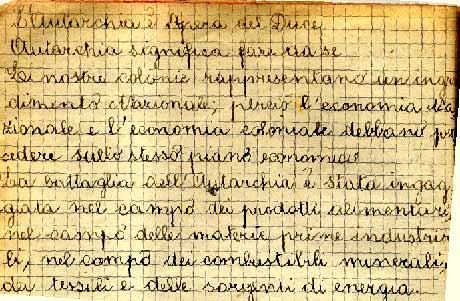 L'Autarchia è Opera del Duce,
Autarchia significa fare da se
Le nostre colonie rappresentano un ingra
dimento Nazionale; perciò l'economia Na
zionale e l'economia coloniale debbano pro
cedere sullo stesso piano economico
La battaglia dell'Autarchia è stata ingag
giata nel campo dei prodotti alimentari,
nel campo delle materie prime industria
li, nel campo dei combustibili minerali,
dei tessili e delle sorgenti di energia.